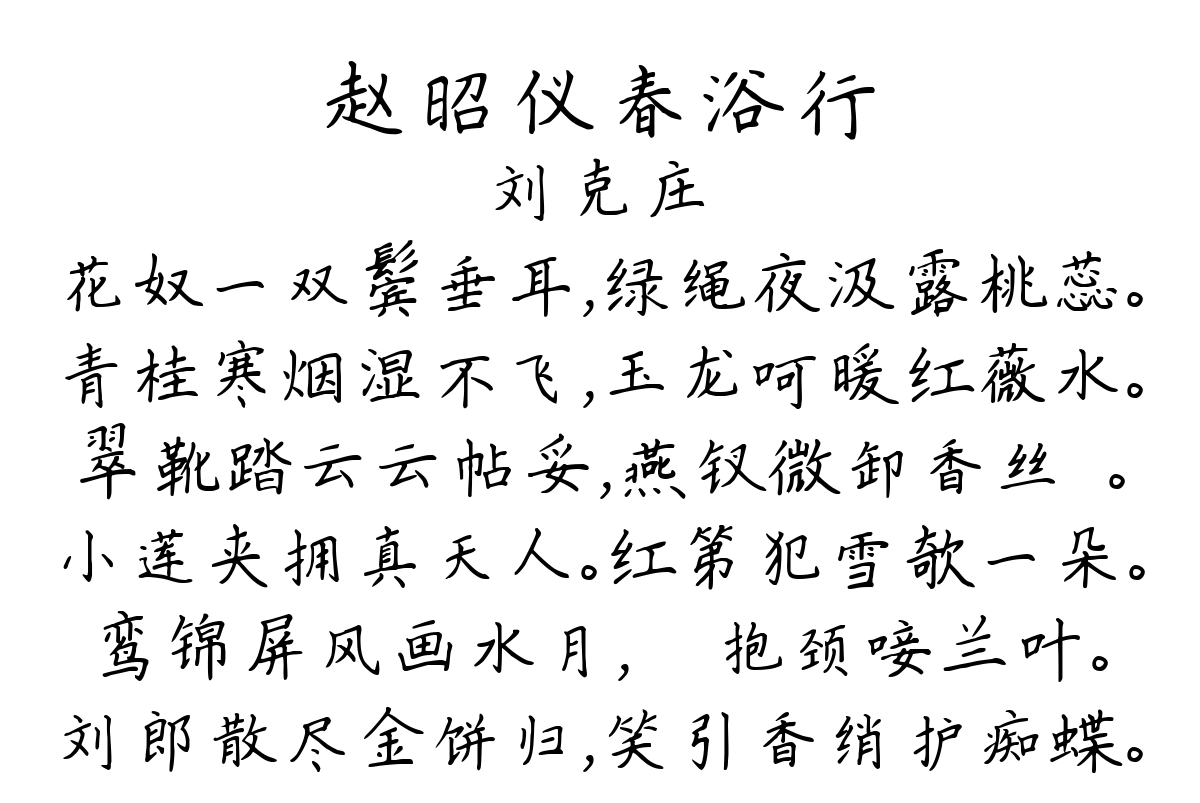 赵昭仪春浴行
刘克庄
花奴一双鬓垂耳,绿绳夜汲露桃蕊。
青桂寒烟湿不飞,玉龙呵暖红薇水。
翠靴踏云云帖妥,燕钗微卸香丝 。
小莲夹拥真天人。红第犯雪欹一朵。
鸾锦屏风画水月, 抱颈唼兰叶。
刘郎散尽金饼归,笑引香绡护痴蝶。